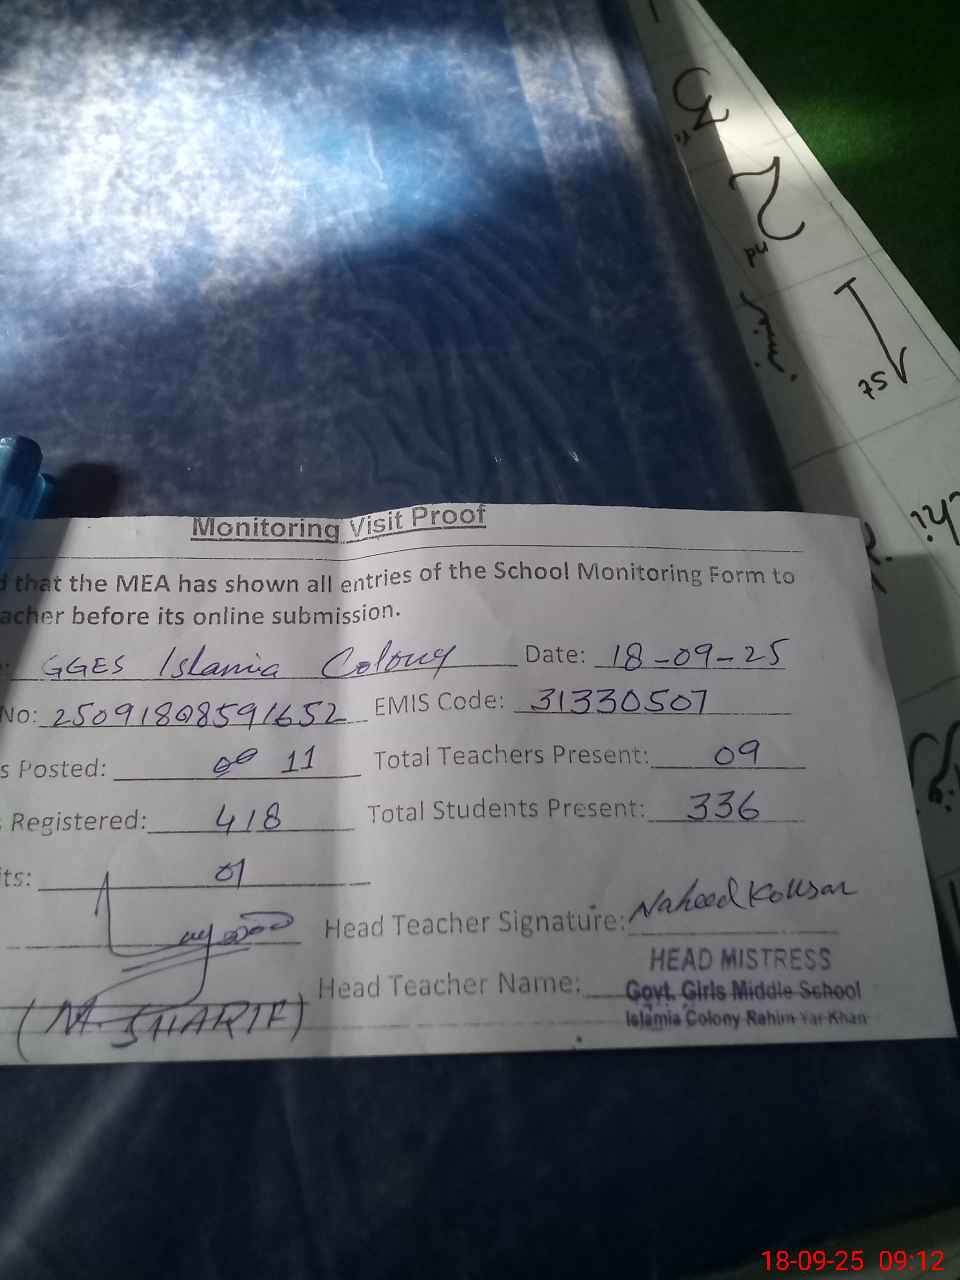 3
2
nd
1
st
Monitoring Visit Proof
that the MEA has shown all entries of the School Monitoring Form to
acher before its online submission.
GGES Islamia Colony Date: 18-09-25
No: 25091808591652 EMIS Code: 31330507
s Posted: 11 Total Teachers Present: 09
Registered: 418 Total Students Present: 336
its: 01
Head Teacher Signature: Naheed Kousar
Head Teacher Name:
HEAD MISTRESS
Govt. Girls Middle School
Islamia Colony Rahim Yar Khan
(M. SHARIF)
18-09-25 09:12